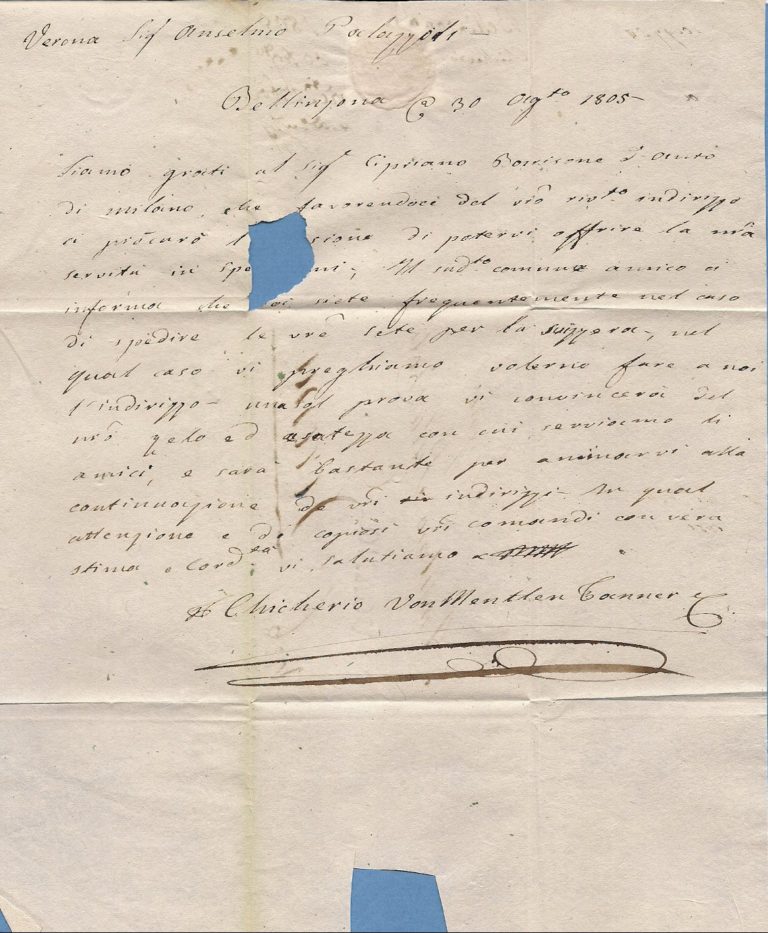 Verona Sig.r Anselmo Palazzoli
Bellinzona @ 30 Agto 1805
Siamo grati al Sig.r Cipriano
di Milano, che favorendoci del vrõ indirizzo
ci procurò l sione di potervi offrire la nrã
servitù in spe ni; Il sudto comune amico ci
informa che voi siete frequentemente nel caso
di spedire le vrẽ sete per la suizzera, nel
qual caso vi preghiamo volerne fare a noi
l'indirizzo una sol prova vi convincerà del
nrõ zelo ed esatezza con cui serviamo di
amici, e sarà bastante per animarvi alla
continuazione de vrĩ indirizzi. In qual
attenzione e di copiosi vrĩ comandi con vera
stima e Cord.tà vi salutiamo
Chicherio Von Mentlen Tanner &C